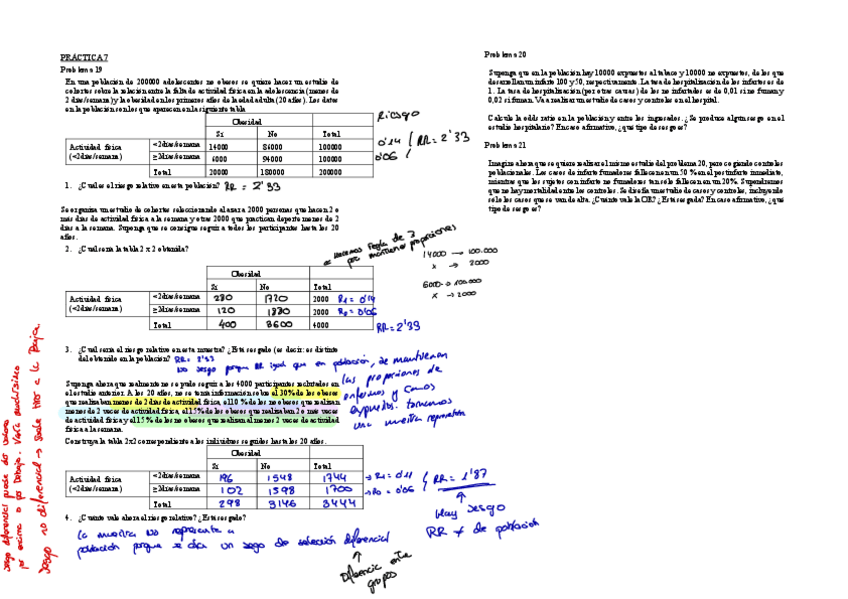 PRÁCTICA 7
Problema 19
En una población de 200000 adolescentes no obesos se quiere hacer un estudio de
cohortes sobre la relación entre la falta de actividad física en la adolescencia (menos de
2 días/semana) y la obesidad en los primeros años de la edad adulta (20 años). Los datos
en la población son los que aparecen en la siguiente tabla
Obesidad
Sí No Total
Actividad física (<2días/semana)
<2días/semana 14000 86000 100000
≥2días/semana 6000 94000 100000
Total 20000 180000 200000
Riesgo
0'14
0'06
RR = 2'33
1. ¿Cuál es el riesgo relativo en esta población? RR = 2'33
Se organiza un estudio de cohortes seleccionando al azar a 2000 personas que hacen 2 o
más días de actividad física a la semana y otras 2000 que practican deporte menos de 2
días a la semana. Suponga que se consigue seguir a todos los participantes hasta los 20
años.
2. ¿Cuál sería la tabla 2 x 2 obtenida?
Hacemos Regla de 3
por mantener proporciones
14000 → 100.000
x → 2000
6000 → 100.000
x → 2000
Obesidad
Sí No Total
Actividad física (<2días/semana)
<2días/semana 280 1720 2000 R1 = 0'14
≥2días/semana 120 1880 2000 R0 = 0'06
Total 400 3600 4000
RR = 2'33
3. ¿Cuál sería el riesgo relativo en esta muestra? ¿Está sesgado (es decir: es distinto
del obtenido en la población? RR = 2'33
No sesgo porque RR igual que en población, se mantienen
las proporciones de
enfermos y casos
expuestos. tomamos
una muestra representa
Suponga ahora que realmente no se pudo seguir a los 4000 participantes reclutados en
el estudio anterior. A los 20 años, no se tenía información sobre el 30% de los obesos
que realizaban menos de 2 días de actividad física, el 10% de los no obesos que realizan
menos de 2 veces de actividad física, el 15% de los obesos que realizaban 2 o más veces
de actividad física y el 15% de los no obesos que realizan al menos 2 veces de actividad
física a la semana.
Construya la tabla 2x2 correspondiente a los individuos seguidos hasta los 20 años.
Obesidad
Sí No Total
Actividad física (<2días/semana)
<2días/semana 196 1548 1744 → R1 = 0'11
≥2días/semana 102 1598 1700 → R0 = 0'06
Total 298 3146 3444
RR = 1'87
Hay sesgo
RR ≠ de población
4. ¿Cuánto vale ahora el riesgo relativo? ¿Está sesgado?
la muestra no representa a
población porque se da un sesgo de selección diferencial
Diferencia entre
grupos
sesgo diferencial puede dar valores
por encima o por debajo.
sesgo no diferencial → suele tiras a la baja
Problema 20
Suponga que en la población hay 10000 expuestos al tabaco y 10000 no expuestos, de los que
desarrollan un infarto 100 y 50, respectivamente. La tasa de hospitalización de los infartos es de
1. La tasa de hospitalización (por otras causas) de los no infartados es de 0,01 si no fuman y
0,02 si fuman. Va a realizar un estudio de casos y controles en el hospital.
Calcule la odds ratio en la población y entre los ingresados. ¿Se produce algún sesgo en el
estudio hospitalario? En caso afirmativo, ¿qué tipo de sesgo es?
Problema 21
Imagine ahora que se quiere realizar el mismo estudio del problema 20, pero cogiendo controles
poblacionales. Los casos de infarto fumadores fallecen en un 50 % en el postinfarto inmediato,
mientras que los sujetos con infarto no fumadores tan sólo fallecen en un 20%. Supondremos
que no hay mortalidad entre los controles. Se diseña un estudio de casos y controles, incluyendo
sólo los casos que se van de alta. ¿Cuánto vale la OR? ¿Está sesgada? En caso afirmativo, ¿qué
tipo de sesgo es?